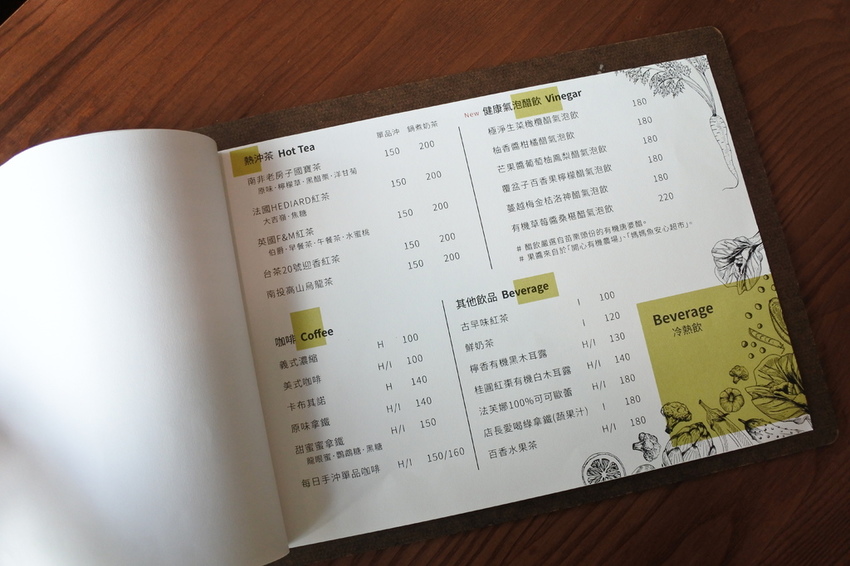 熱沖茶 Hot Tea 單品沖 鍋煮奶茶
南非老房子國寶茶 150 200
原味、檸檬草、黑醋栗、洋甘菊
法國HEDIARD紅茶 150 200
大吉嶺、焦糖
英國F&M紅茶 150 200
伯爵、早餐茶、午餐茶、水蜜桃
台茶20號迎香紅茶 150 200
南投高山烏龍茶 150 200
咖啡 Coffee
義式濃縮 H 100
美式咖啡 H/I 100
卡布其諾 H 140
原味拿鐵 H/I 140
甜蜜蜜拿鐵 H/I 150
龍眼蜜、鸚鵡糖、黑糖
每日手沖單品咖啡 H/I 150/160
New 健康氣泡醋飲 Vinegar
極淨生菜橄欖醋氣泡飲 180
柚香醬柑橘醋氣泡飲 180
芒果醬葡萄柚鳳梨醋氣泡飲 180
覆盆子百香果檸檬醋氣泡飲 180
蔓越梅金桔洛神醋氣泡飲 180
有機草莓醬桑椹醋氣泡飲 220
# 醋飲嚴選自苗栗頭份的有機唐婆醋。
# 果醬來自於「開心有機農場」、「媽媽魚安心超市」。
其他飲品 Beverage
古早味紅茶 I 100
鮮奶茶 I 120
檸香有機黑木耳露 H/I 130
桂圓紅棗有機白木耳露 H/I 140
法芙娜100%可可歐蕾 H/I 180
店長愛喝綠拿鐵(蔬果汁) I 180
百香水果茶 H/I 180
Beverage
冷熱飲